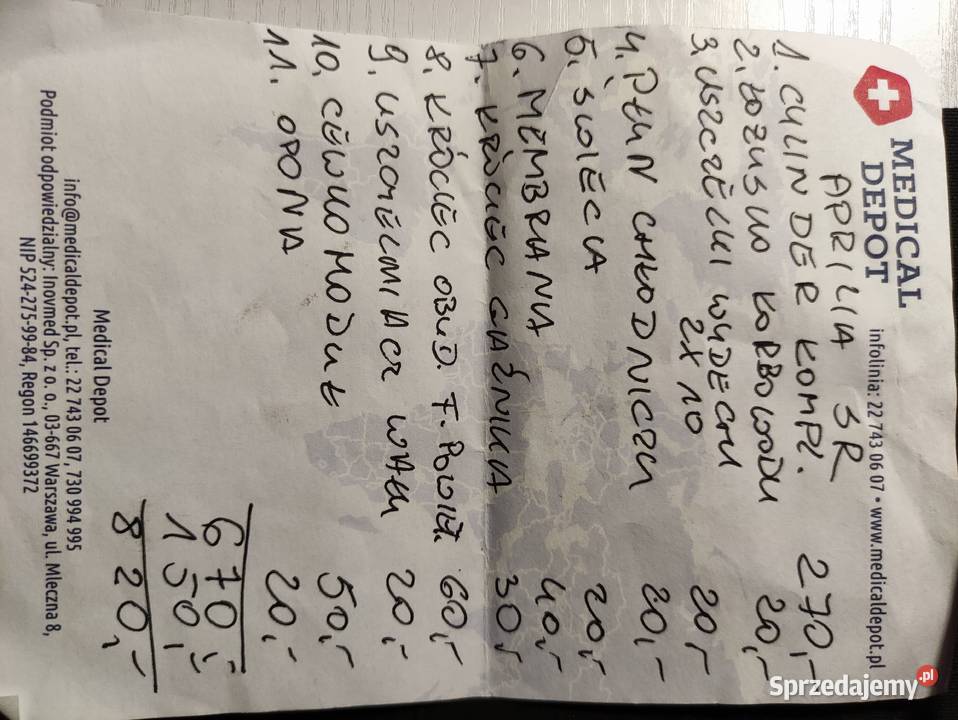 MEDICAL
DEPOT
infolinia: 22 743 06 07 • www.medicaldepot.pl
APRILIA SR
1. CYLINDER KOMPL. 270,-
2. ŁOŻYSKO KORBOWODU 20,-
3. USZCZELKI WYDECHU 20,-
2X10
4. PŁYN CHŁODNICZY 20,-
5. SWIECA 20,-
6. MEMBRANA 40,-
7. KRÓCIEC GAŹNIKA 30,-
8. KRÓCIEC OBUD. F. POWIET. 60,-
9. USZCZELNIACZ WAŁU 20,-
10. CEWKO MODUŁ 50,-
11. OPONA 20,-
670,-
150,-
820,-
Medical Depot
info@medicaldepot.pl, tel.: 22 743 06 07, 730 994 995
Podmiot odpowiedzialny: Inovmed Sp. z o. o., 03-667 Warszawa, ul. Mleczna 8,
NIP 524-275-99-84, Regon 146699372
Sprzedajemy.pl